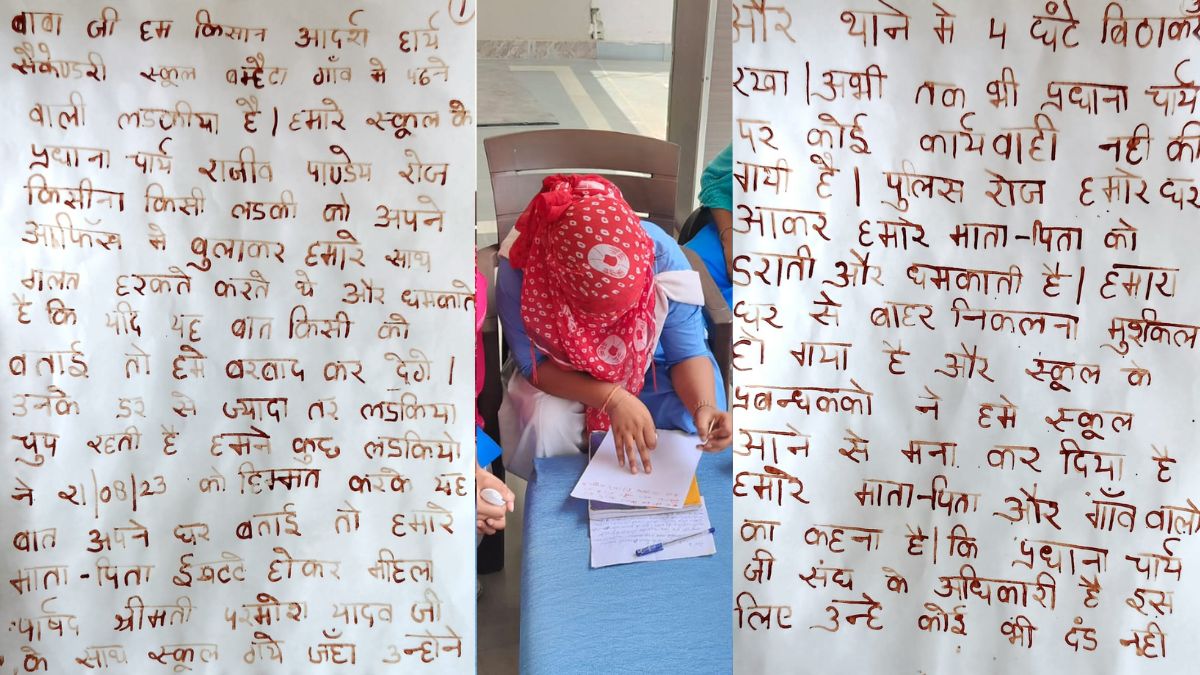 1
बाबा जी हम किसान आदर्श हायँ
सैकेण्डरी स्कूल बम्हैटा गाँव मे पढने
वाली लडकीया है। हमारे स्कूल के
प्रधाना चार्य राजीव पाण्डेय रोज
किसीना किसी लडकी को अपने
आफिॅस मे बुलाकर हमारे साथ
गलत हरकते करते थे और धमकाते
है कि यदि यह बात किसी को
बताई तो हमे बरबाद कर देगे।
उनके डर से ज्यादा तर लडकिया
चुप रहती है हमने कुछ लडकियो
ने 21/08/23 को हिम्मत करके यह
बात अपने घर बताई तो हमारे
माता-पिता ईखटटे होकर महिला
पार्षद श्रीमती परमोश यादव जी
के साथ स्कूल गये जँहा उन्होने
और थाने मे 4 घंटे बिठाकर
रखा। अभी तक भी प्रधाना चार्य
पर कोई कार्यवाही नही की
गयी है। पुलिस रोज हमारे घर
आकर हमारे माता-पिता को
डराती और धमकाती है। हमारा
घर से बाहर निकलना मुर्शकल
हो गया है और स्कूल के
प्रबन्धकको ने हमे स्कूल
आने से मना कर दिया है
हमारे माता-पिता और गाँव वालो
का कहना है। कि प्रधाना चार्य
जी संघ के अधिकारी है इस
लिए उन्हे कोई भी दंड नही